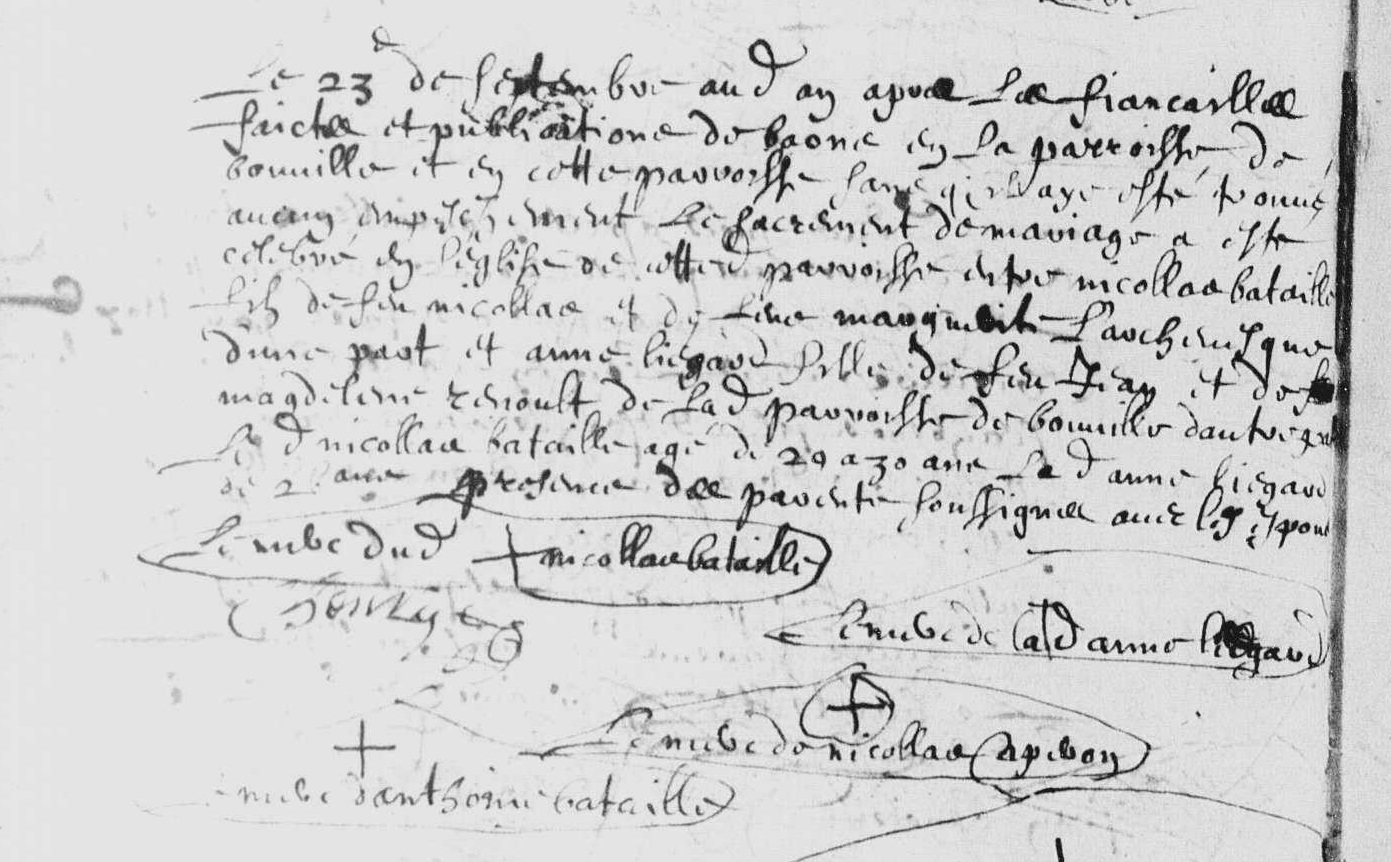 Le 23 de septembre aud an apres les fiancailles
faictes et publications de bans en la parroisse de
bouville et en cette parroisse sans qu'il aye esté trouvé
aucun empeschement Le sacrement de mariage a este
celebré en l'eglise de cetted parroisse entre nicollas bataille
fils de feu nicollas et de marguerite Larchevesque
d'une part et anne liegard fille de feu Jean et de
magdelene renoult de lad parroisse de bouville d'autre part
Le d nicollas bataille agé de 29 a 30 ans La d anne liegard
de ans presence des parents soussignes avec les espoux
Le merc dud + nicollas bataille
Le merc de la d anne liegard
+
Le merc de nicollas Caperon
+
merc d'anthoine bataille